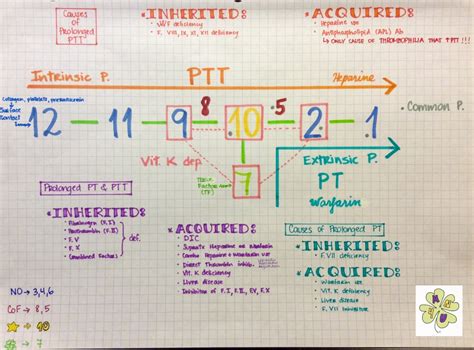 Causes of Prolonged PTT
* INHERITED:
• vWF deficiency
• F. VIII, IX, XI, XII deficiency
* ACQUIRED:
• Heparine use
• Antiphospholipid (APL) Ab
↳ ONLY CAUSE OF THROMBOPHILIA THAT ↑PTT!!!
Intrinsic P.
PTT
Heparine
Collagen, platelets, prekallikrein
Surface Contact
12 — 11 — 9 — 8 — 10 — 5 — 2 — 1
• Common P.
Vit. K dep.
7
Tissue Factor
(TF)
Extrinsic P.
PT
Warfarin
Prolonged PT & PTT
* INHERITED:
• Fibrinogen (F. I)
• Prothrombin (F. II)
• F. V
• F. X
• Combined Factor
def.
* ACQUIRED:
• DIC
• Supratx Heparine or Warfarin
• Combo Heparine & Warfarin use
• Direct Thrombin Inhib.
• Vit. K deficiency
• Liver disease
• Inhibitor of F. I, F. II, F.V, F.X
Causes of Prolonged PT
* INHERITED:
• F. VII deficiency
* ACQUIRED:
• Warfarin use
• Vit. K deficiency
• Liver disease
• F. VII Inhibitor
NO → 3,4,6
CoF → 8,5
→ 10
→ 7